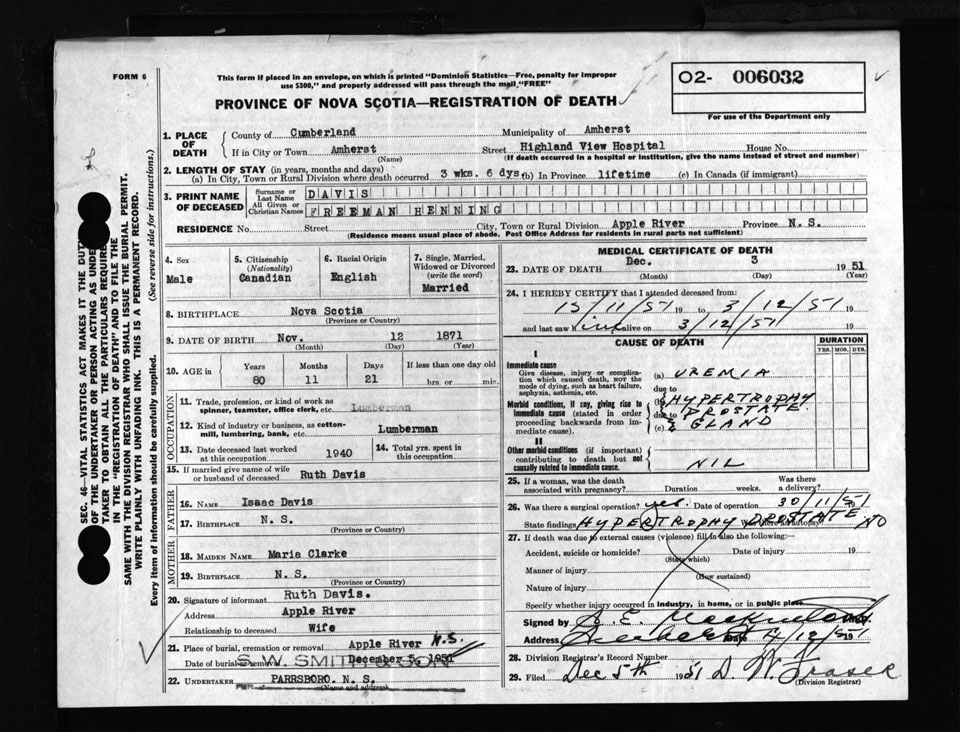 FORM 6
This form if placed in an envelope, on which is printed "Dominion Statistics—Free, penalty for improper
use $300," and properly addressed will pass through the mail "FREE"
PROVINCE OF NOVA SCOTIA—REGISTRATION OF DEATH
O2- 006032
For use of the Department only
SEC. 46—VITAL STATISTICS ACT MAKES IT THE DUTY
OF THE UNDERTAKER OR PERSON ACTING AS UNDER
TAKER TO OBTAIN ALL THE PARTICULARS REQUIRED
IN THE "REGISTRATION OF DEATH" AND TO FILE THE
SAME WITH THE DIVISION REGISTRAR WHO SHALL ISSUE THE BURIAL PERMIT.
WRITE PLAINLY WITH UNFADING INK. THIS IS A PERMANENT RECORD.
Every item of information should be carefully supplied. (See reverse side for instructions.)
1. PLACE OF DEATH
County of Cumberland Municipality of Amherst
If in City or Town Amherst Street Highland View Hospital House No.
(Name) (If death occurred in a hospital or institution, give the name instead of street and number)
2. LENGTH OF STAY (in years, months and days)
(a) In City, Town or Rural Division where death occurred 3 wks. 6 dys. (b) In Province lifetime (c) In Canada (if immigrant)
3. PRINT NAME OF DECEASED
Surname or Last Name DAVIS
All Given or Christian Names FREEMAN HENNING
RESIDENCE No. Street City, Town or Rural Division Apple River Province N. S.
(Residence means usual place of abode. Post Office Address for residents in rural parts not sufficient)
4. Sex 5. Citizenship (Nationality) 6. Racial Origin 7. Single, Married, Widowed or Divorced (write the word)
Male Canadian English Married
8. BIRTHPLACE Nova Scotia
(Province or Country)
9. DATE OF BIRTH Nov. 12 1871
(Month) (Day) (Year)
10. AGE in Years Months Days If less than one day old
80 11 21 hrs. or min.
OCCUPATION
11. Trade, profession, or kind of work as
spinner, teamster, office clerk, etc. Lumberman
12. Kind of industry or business, as cotton-
mill, lumbering, bank, etc. Lumberman
13. Date deceased last worked at this occupation 1940 14. Total yrs. spent in this occupation
15. If married give name of wife
or husband of deceased Ruth Davis
FATHER
16. NAME Isaac Davis
17. BIRTHPLACE N. S.
(Province or Country)
MOTHER
18. MAIDEN NAME Maria Clarke
19. BIRTHPLACE N. S.
(Province or Country)
20. Signature of informant Ruth Davis.
Address Apple River
Relationship to deceased Wife
21. Place of burial, cremation or removal Apple River N.S.
Date of burial or removal December 5, 1951
S.W. SMITH
22. UNDERTAKER PARRSBORO, N. S.
(Name and address)
MEDICAL CERTIFICATE OF DEATH
23. DATE OF DEATH Dec. 3 1951
(Month) (Day) (Year)
24. I HEREBY CERTIFY that I attended deceased from:
15/11/51 19 to 3/12/51 19
and last saw him alive on 3/12/51 19
CAUSE OF DEATH DURATION
YRS. MOS. DYS.
I
Immediate cause
Give disease, injury or complica-
tion which caused death, not the
mode of dying, such as heart failure,
asphyxia, asthenia, etc.
(a) UREMIA
due to
Morbid conditions, if any, giving rise to
immediate cause (stated in order
proceeding backwards from im-
mediate cause).
(b) HYPERTROPHY
due to PROSTATE
(c) GLAND
II
Other morbid conditions (if important)
contributing to death but not
causally related to immediate cause.
NIL
25. If a woman, was the death
associated with pregnancy? Duration weeks. Was there a delivery?
26. Was there a surgical operation? yes. Date of operation 30/11/51
State findings HYPERTROPHY PROSTATE Was there an autopsy? NO
27. If death was due to external causes (violence) fill in also the following:—
Accident, suicide or homicide? Date of injury 19
(State which)
Manner of injury
(How sustained)
Nature of injury
Specify whether injury occurred in industry, in home, or in public place
Signed by
Address Date 4/12/51 19
28. Division Registrar's Record Number
29. Filed Dec 5th 1951 D. W. Fraser
(Division Registrar)